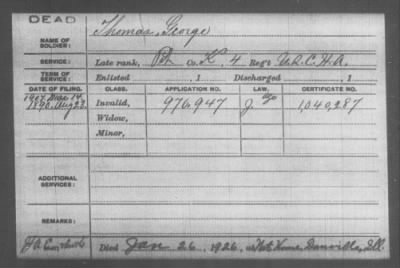 DEAD
NAME OF SOLDIER: Thomas, George
SERVICE: Late rank, Pvt Co. K, 4 Reg't U.S.C.H.A.
TERM OF SERVICE: Enlisted , 1 Discharged , 1
DATE OF FILING. CLASS. APPLICATION NO. LAW. CERTIFICATE NO.
1907 Mar 14
1890. Aug 23 Invalid, 976,947 J. 1,040,287
Widow,
Minor,
ADDITIONAL SERVICES:
REMARKS:
Died Jan 26, 1926, at Nat Home, Danville, Ill.